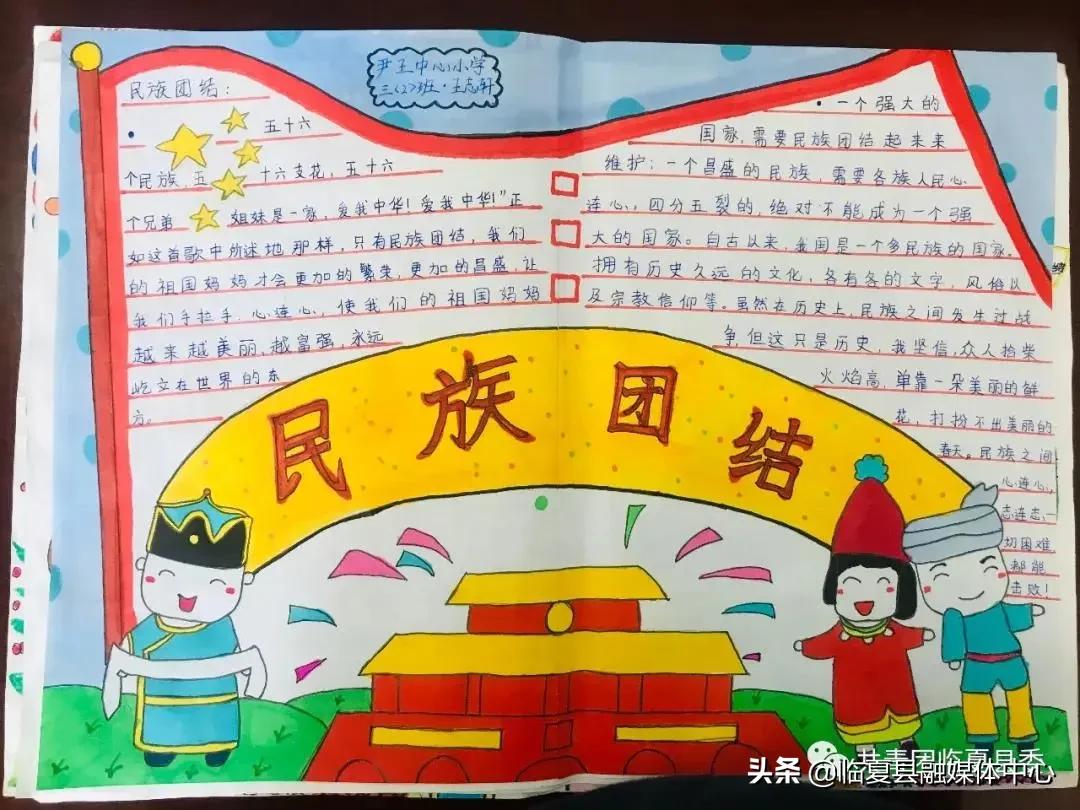 尹王中心小学
三(2)班·王志轩
民族团结：
• 五十六
个民族，五 十六支花，五十六
个兄弟 姐妹是一家，爱我中华！爱我中华！”正
如这首歌中所述地那样，只有民族团结，我们
的祖国妈妈才会更加的繁荣，更加的昌盛，让
我们手拉手，心连心，使我们的祖国妈妈
越来越美丽，越富强，永远
屹立在世界的东
方。
•一个强大的
国家，需要民族团结起来来
维护；一个昌盛的民族，需要各族人民心
连心，四分五裂的，绝对不能成为一个强
大的国家。自古以来，我国是一个多民族的国家。
拥有历史久远的文化，各有各的文字，风俗以
及宗教信仰等。虽然在历史上，民族之间发生过战
争，但这只是历史，我坚信，众人拾柴
火焰高，单靠一朵美丽的鲜
花，打扮不出美丽的
春天。民族之间
心连心，
志连志，一
切困难
都能
击败！
民族团结
共青团临夏县委
头条 @临夏县融媒体中心